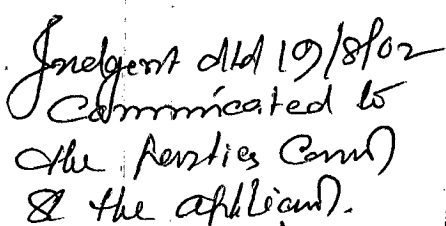 Judgent dtd 19/8/02
Communicated to
the Parties Counl
& the applicant.